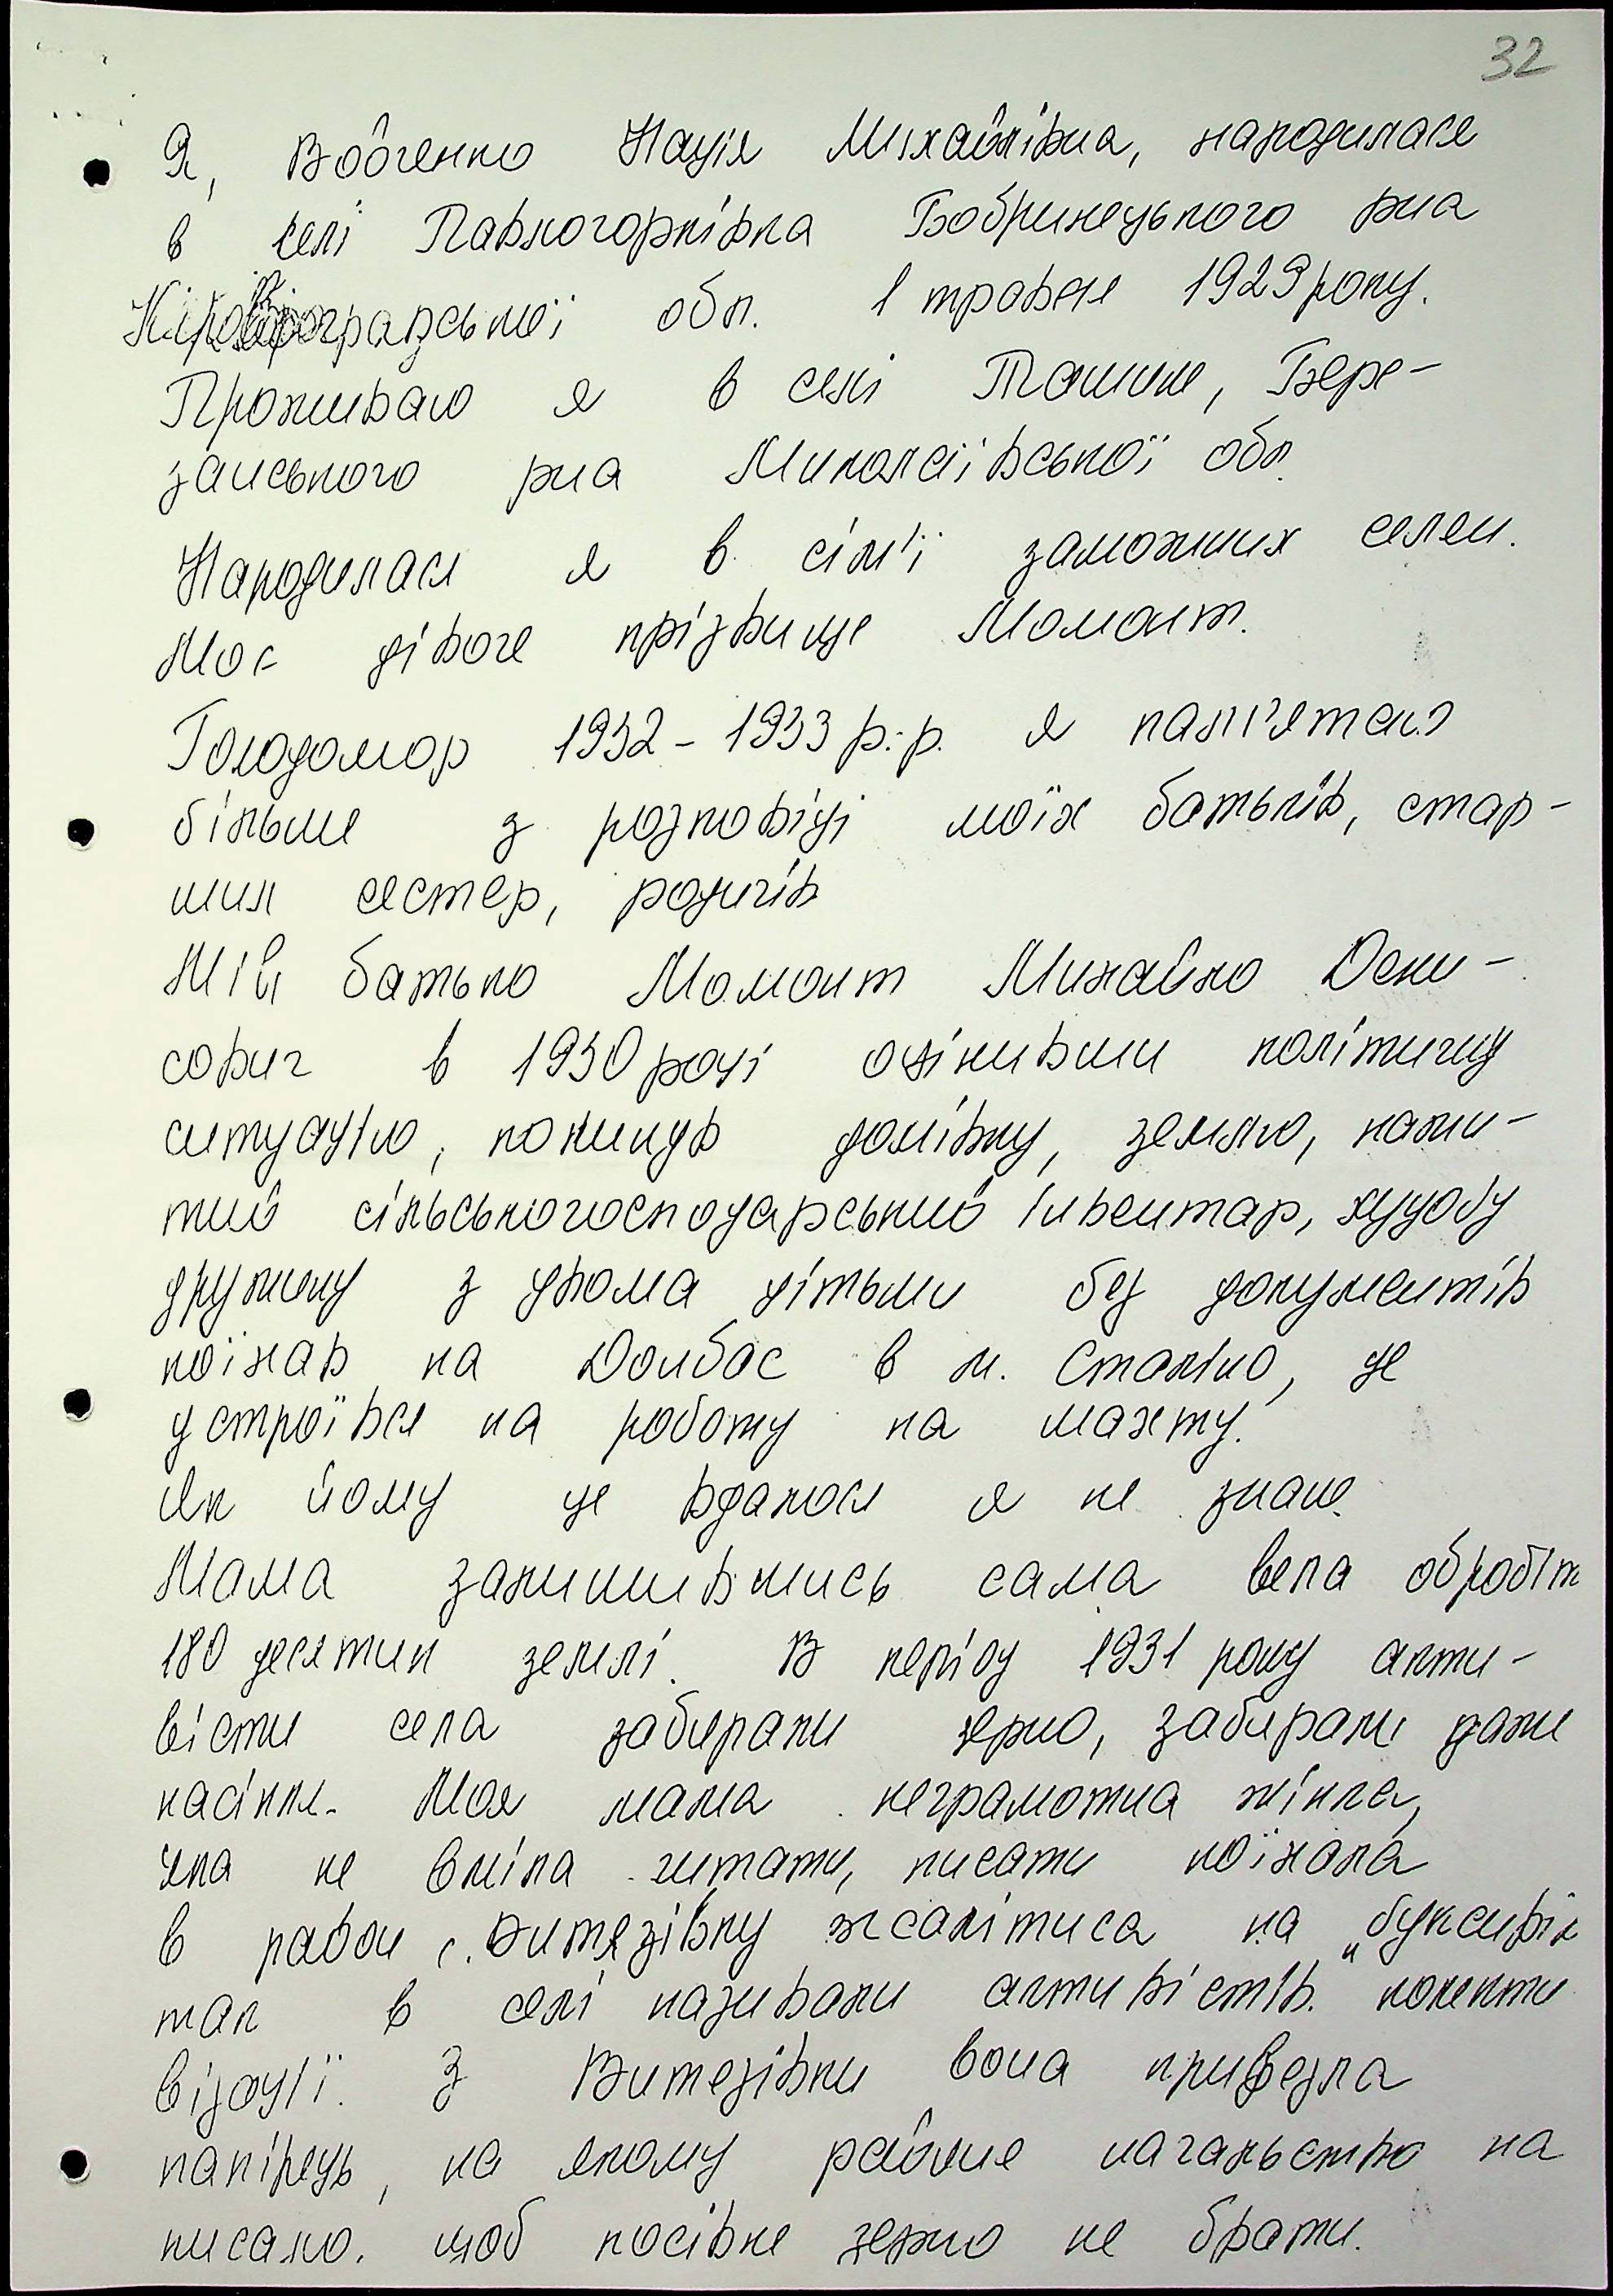 32
Я, Войченко Надія Михайлівна, народилася
в селі Павлогорківка Бобринецького р-на
Кіровоградської обл. 1 травня 1929 року.
Проживаю я в селі Ташине, Бере-
занського р-на Миколаївської обл.
Народилася я в сім'ї заможних селян.
Моє дівоче прізвище Момонт.
Голодомор 1932 - 1933 р.р. я пам'ятаю
більше з розповіді моїх батьків, стар-
ших сестер, родичів
Мій батько Момонт Михайло Дени-
сович в 1930 році оцінивши політичну
ситуацію, покинув домівку, землю, нажи-
тий сільськогосподарський інвентар, худобу
дружину з двома дітьми без документів
поїхав на Донбас в м. Сталіно, де
устроївся на роботу на шахту.
Як йому це вдалося я не знаю.
Мама залишившись сама вела обробіт
180 десятин землі. В період 1931 року акти-
вісти села забирали зерно, забирали даже
насіння. Моя мама неграмотна жінка,
яка не вміла читати, писати поїхала
в район с. Витязівку жсалітися на „буксирів
так в селі називали активістів
візації. З Витязівки вона привезла
папірець, на якому районне начальство на
писало. щоб посівне зерно не брати.